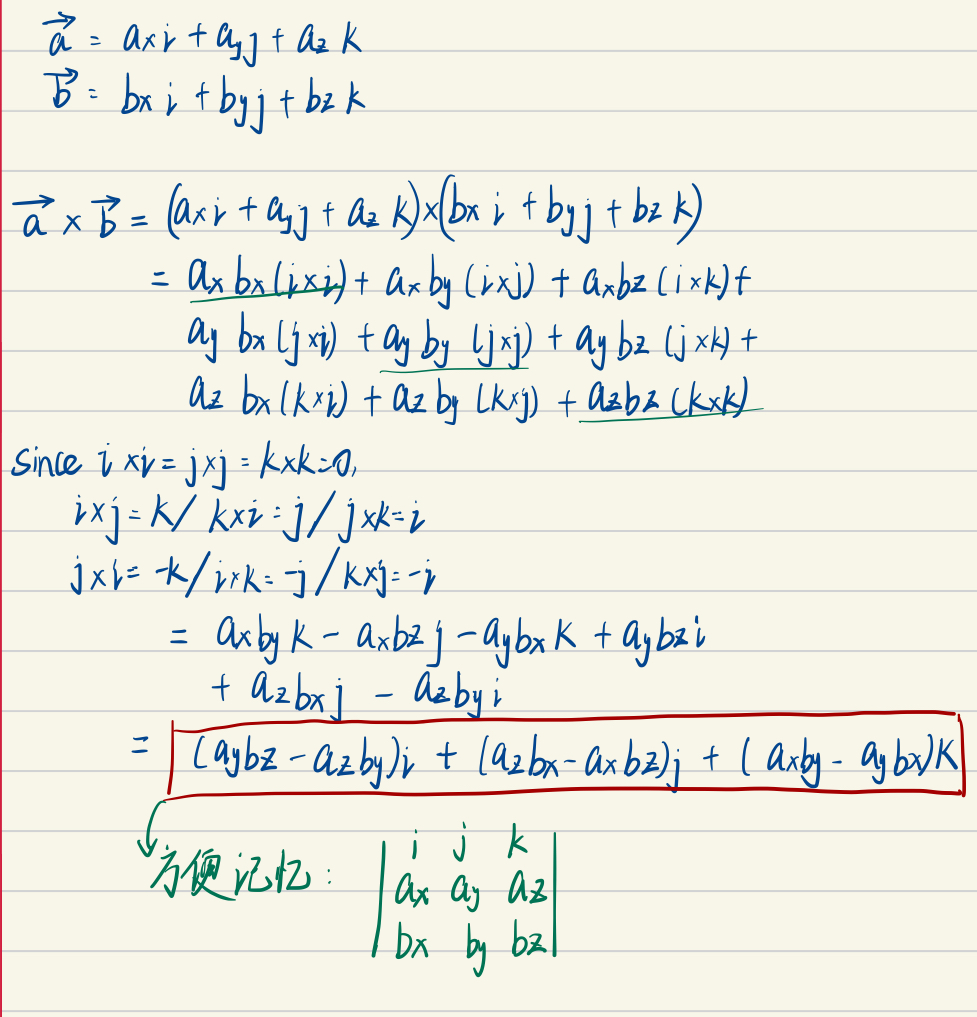 a⃗ = axi + ayj + az k
b⃗ = bx i + byj + bz k
a⃗ × b⃗ = (axi + ayj + az k)×(bx i + byj + bz k)
= ax bx(i×i) + ax by (i×j) + axbz (i×k)+
ay bx (j×i) + ay by (j×j) + ay bz (j×k) +
az bx(k×i) + az by (k×j) + azbz (k×k)
Since i×i = j×j = k×k=0,
i×j = k/ k×i = j/ j×k=i
j×i= -k/ i×k= -j/ k×j= -i
= axby k - axbz j - aybx k + aybzi
+ azbxj - azbyi
= (aybz - azby)i + (azbx - axbz)j + (axby - aybx)k
方便记忆:
i j k
ax ay az
bx by bz